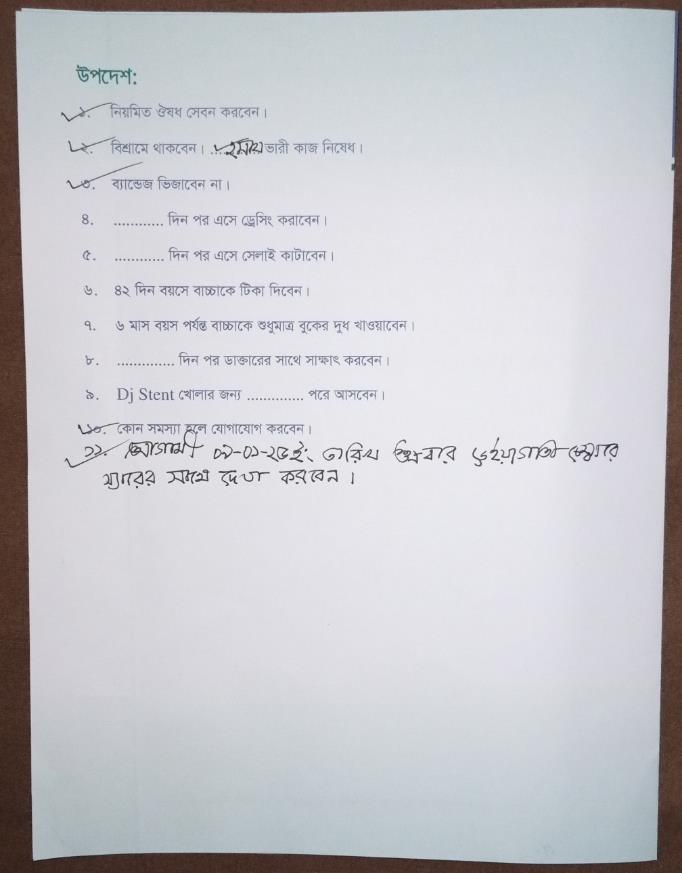 উপদেশ:
১. নিয়মিত ঔষধ সেবন করবেন।
২. বিশ্রামে থাকবেন। ... ভারী কাজ নিষেধ।
৩. ব্যান্ডেজ ভিজাবেন না।
৪. ............ দিন পর এসে ড্রেসিং করাবেন।
৫. ............ দিন পর এসে সেলাই কাটাবেন।
৬. ৪২ দিন বয়সে বাচ্চাকে টিকা দিবেন।
৭. ৬ মাস বয়স পর্যন্ত বাচ্চাকে শুধুমাত্র বুকের দুধ খাওয়াবেন।
৮. .............. দিন পর ডাক্তারের সাথে সাক্ষাৎ করবেন।
৯. Dj Stent খোলার জন্য .............. পরে আসবেন।
১০. কোন সমস্যা হলে যোগাযোগ করবেন।
১১. আগামী তারিখ শুক্রবার চেম্বারে
স্যারের সাথে দেখা করবেন।